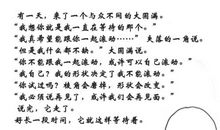 有一天，来了一个与众不同的大圆满。
“我想你就是我一直在等待的那个。”
“我真希望能跟你一起滚动……”失落的一角说。
“但是我什么都不缺。”大圆满说。
“你不能跟我一起滚动，或许可以自己滚动。”
“我自己？我的形状决定了我不能滚动。”
“你试过吗？棱角会磨掉，形状会改变。”
“我必须说再见了，或许我们会再见面。”
说完，它走了。
好长一段时间，它就这样等待着。